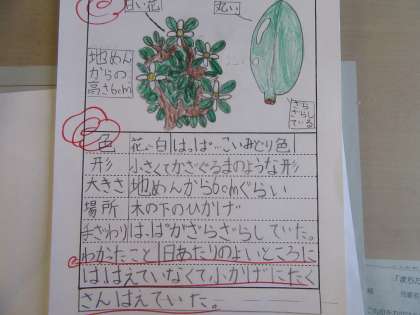 白い花
丸い
地めん
からの
高さ6cm
さら
さらし
ている
色 花…白 はっぱ…こいみどり色
形 小さくてかざぐるまのような形
大きさ 地めんから6cmぐらい
場所 木の下のひかげ
手ざわり はっぱがざらざらしていた。
わかったこと 日あたりのよいところに
は、はえていなくて小かげにたく
さんはえていた。